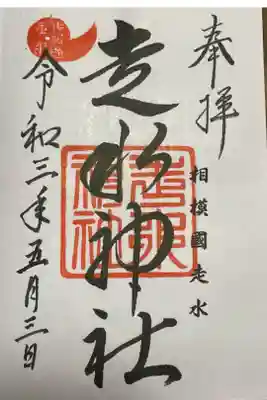 奉拝
相模國走水
走水神社
令和三年五月三日